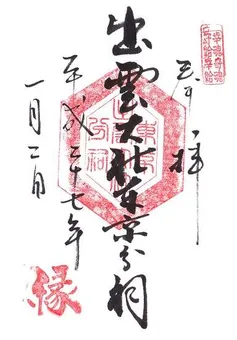 奉拝
出雲大社東京分祠
平成二十七年
一月二日
縁